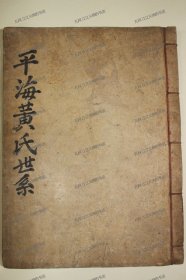 平海黃氏世系